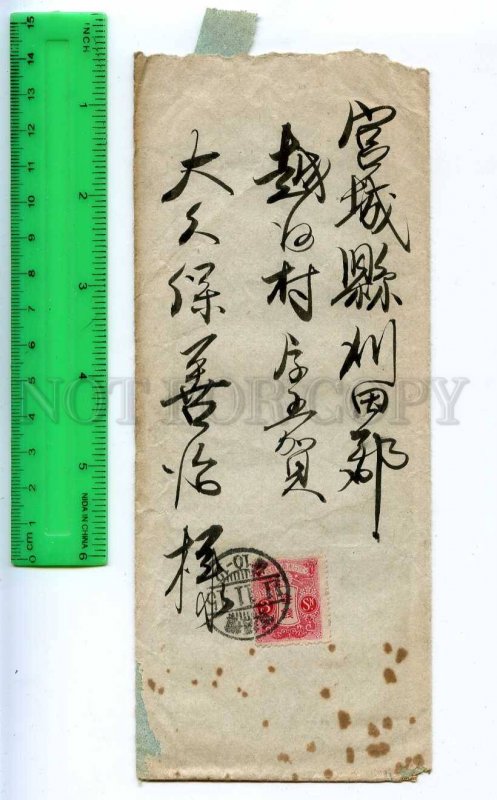 宮城縣刈田郡
越河村字五賀
大久保善治様
NOT FOR COPY
INCH
1
2
3
4
5
6
15
14
13
12
11
10
9
8
7
6
5
4
3
2
1
0 cm
NIDA IN CHINA